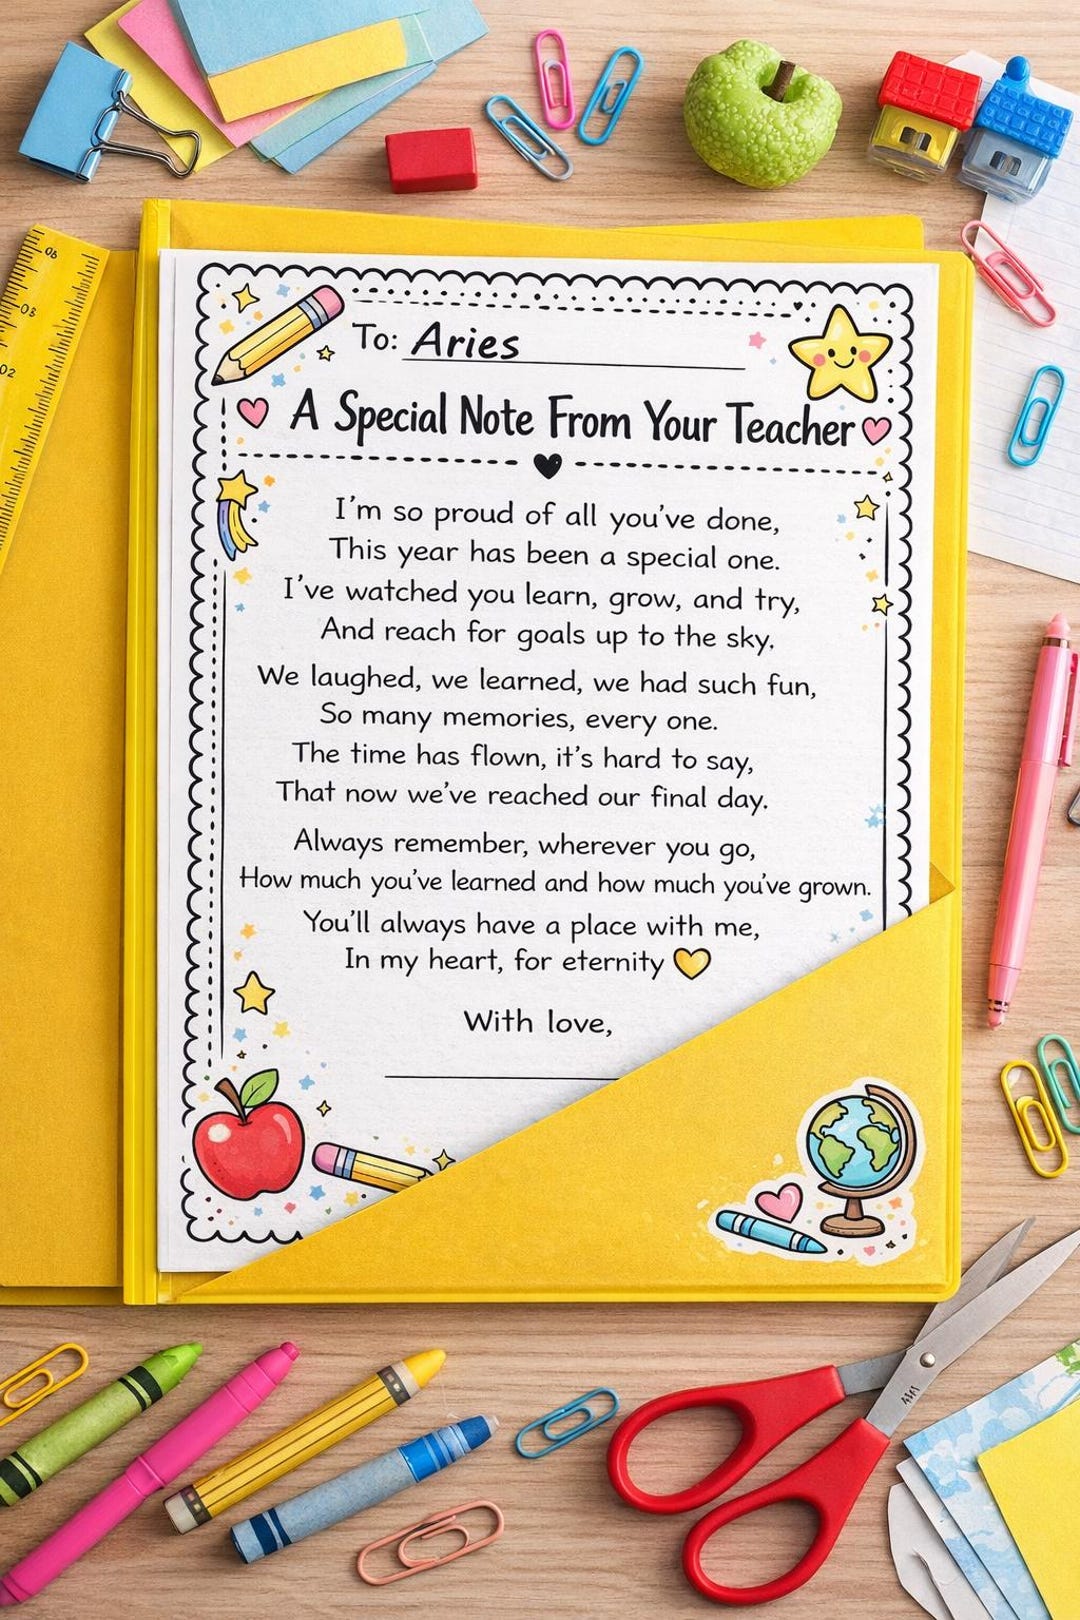 To: Aries
A Special Note From Your Teacher
I'm so proud of all you've done,
This year has been a special one.
I've watched you learn, grow, and try,
And reach for goals up to the sky.
We laughed, we learned, we had such fun,
So many memories, every one.
The time has flown, it's hard to say,
That now we've reached our final day.
Always remember, wherever you go,
How much you've learned and how much you've grown.
You'll always have a place with me,
In my heart, for eternity 💛
With love,